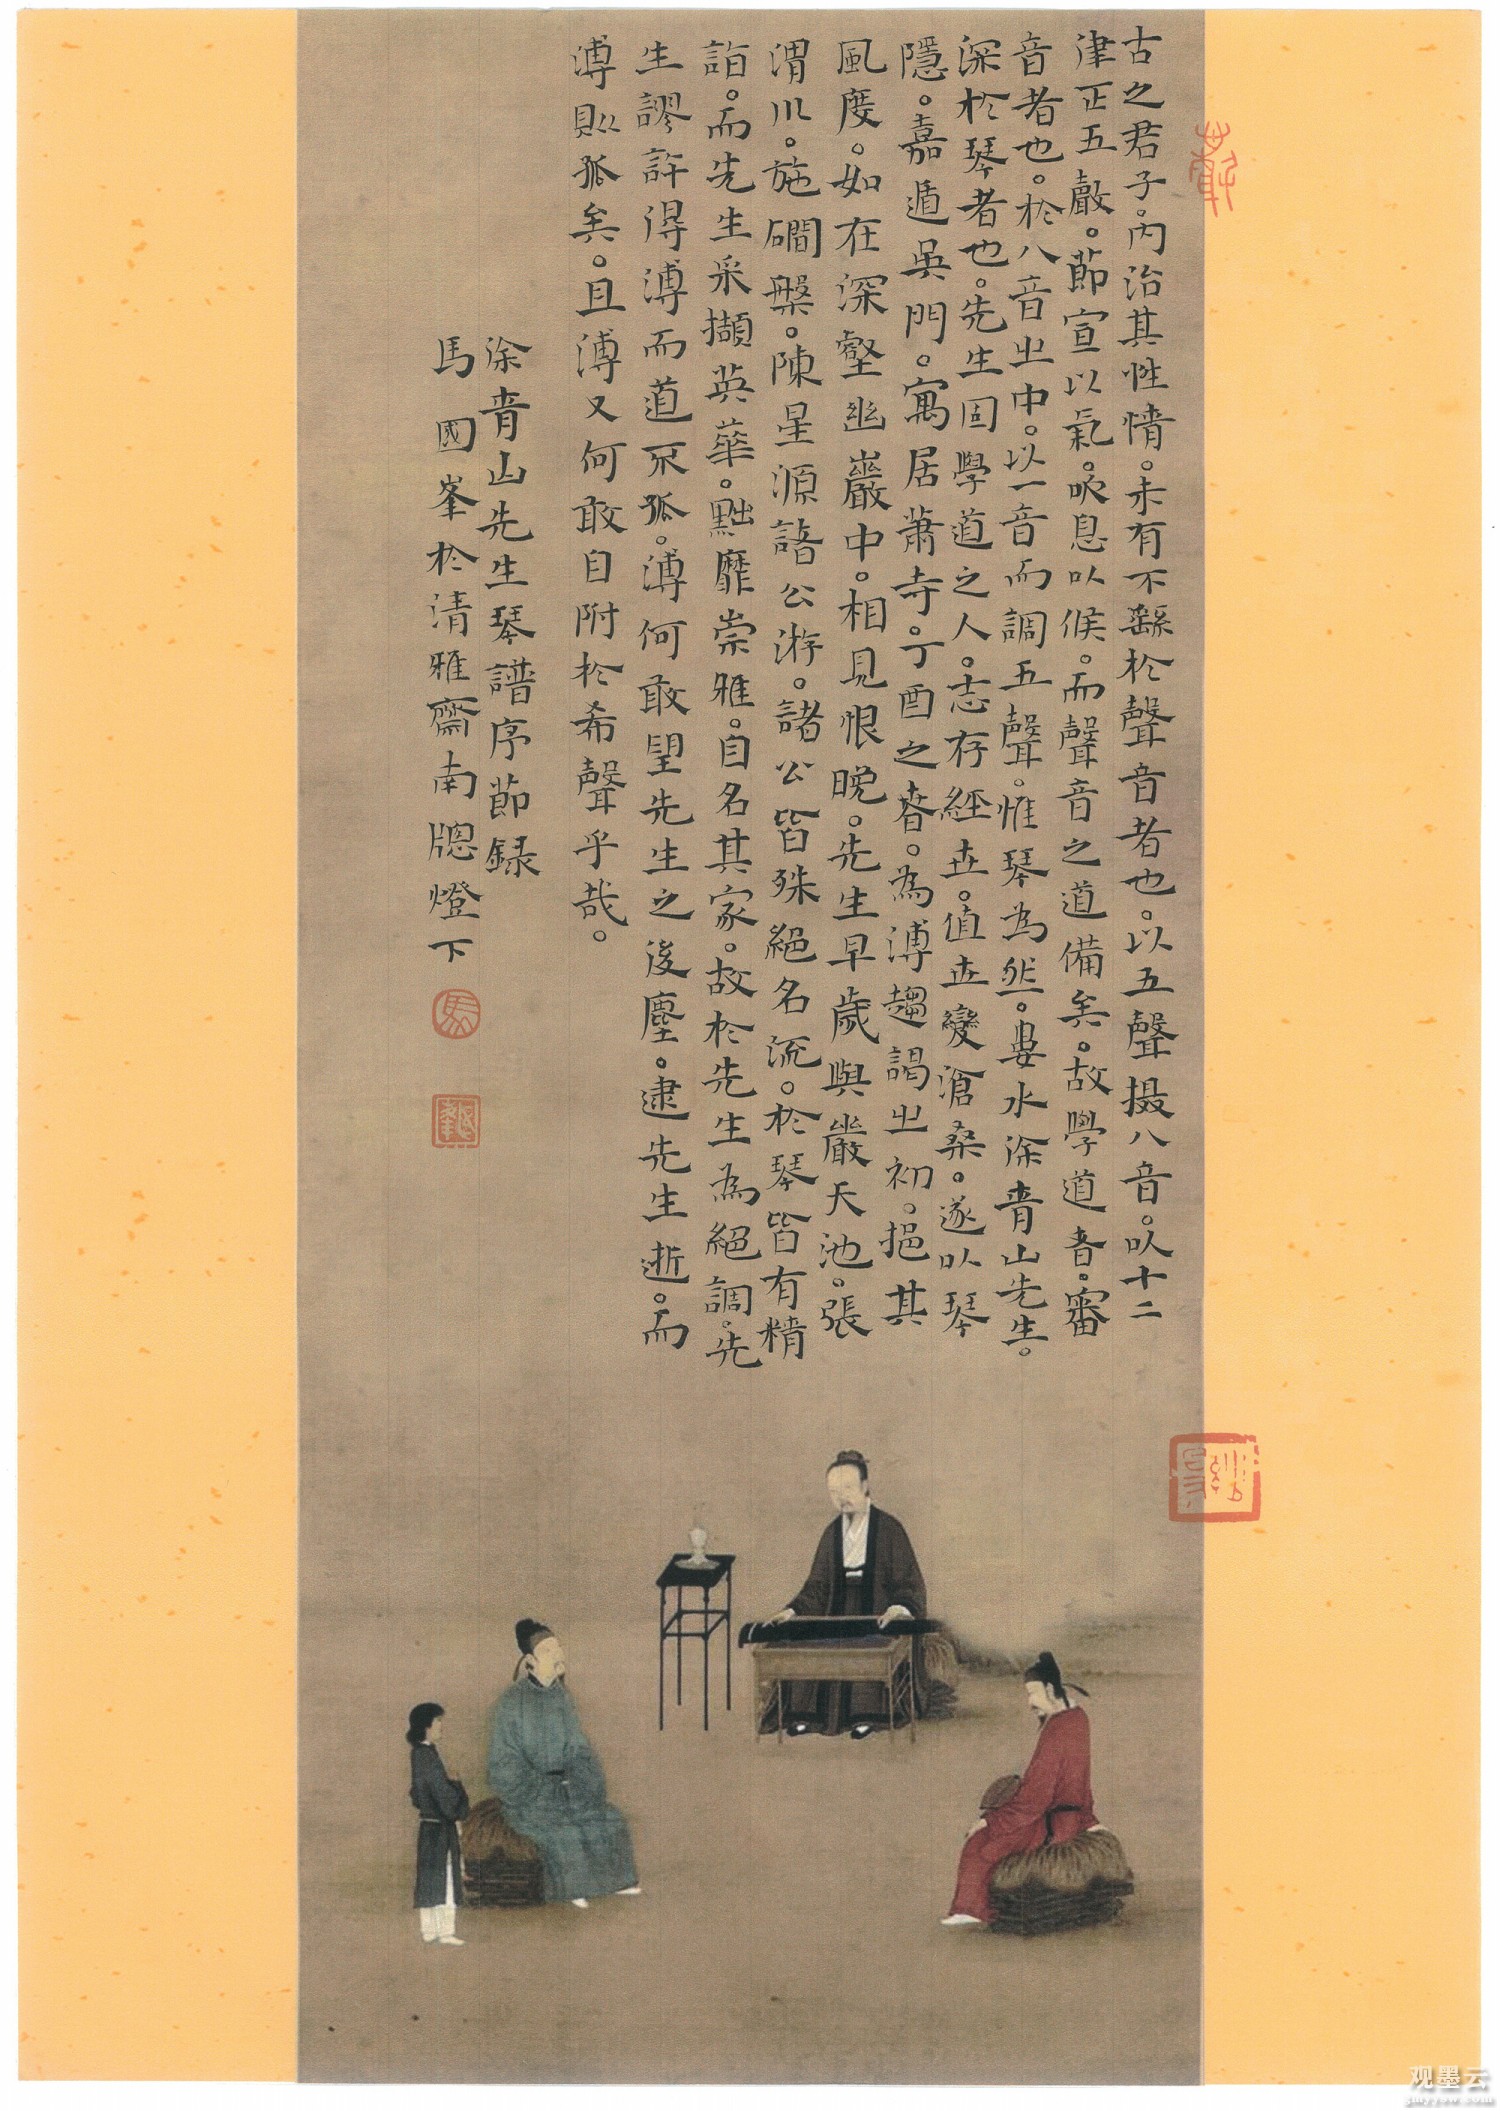 古之君子。内治其性情。未有不繇於聲音者也。以五聲摄八音。㕥十二
津正五嚴。節宣以氣。吹息以候。而聲音之道備矣。故學道者。審
音者也。於八音㞢中。以一音而調五聲。惟琴為然。婁水涂青山先生。
深於琴者也。先生固學道之人。志存經世。值世變滄桑。遂以琴
隱。嘉遁吳門。寓居蕭寺。丁酉之春。為溥趨謁㞢初。挹其
風度。如在深壑幽巖中。相見恨晚。先生早歲與嚴天池。張
渭川。施磵槃。陳星源諸公游。諸公皆殊絕名流。於琴皆有精
詣。而先生采擷英華。黜靡崇雅。自名其家。故於先生為絕調。先
生謬許得溥而道不孤。溥何敢望先生之後塵。逮先生逝。而
溥則孤矣。且溥又何敢自附於希聲乎哉。
涂青山先生琴譜序節録
馬國峯於清雅齋南牕燈下
馬
國峯
观墨云
gmyyow.com